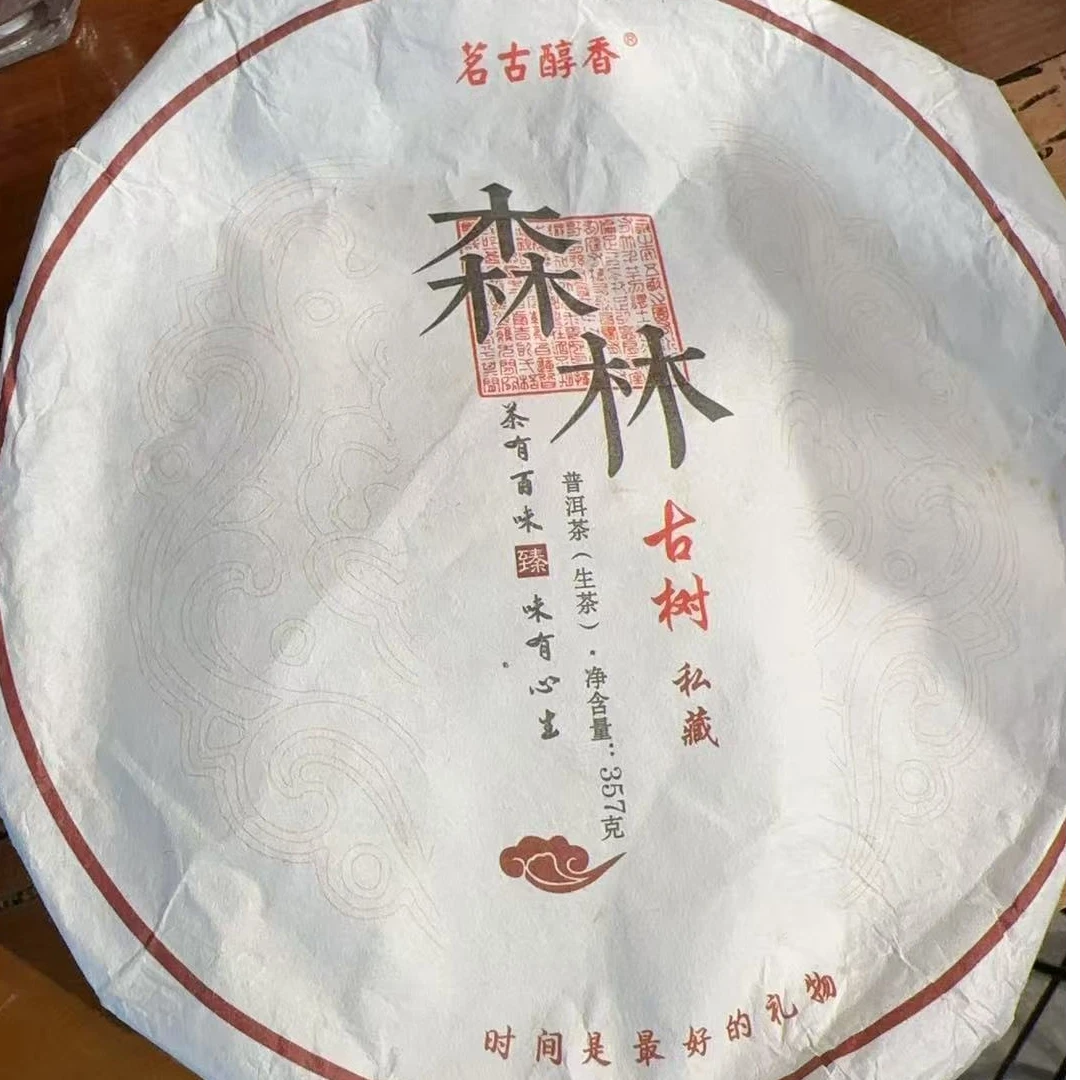 茗古醇香®
森林
茶有百味 臻 味有心生
普洱茶（生茶）·净含量：357克
古树
私藏
时间是最好的礼物